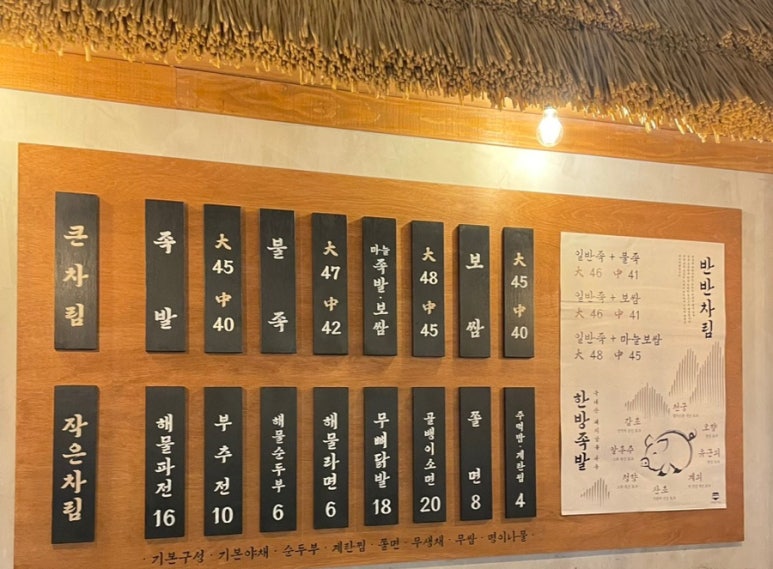 큰차림
족발
大
45
中
40
불족
大
47
中
42
마늘
족발·보쌈
大
48
中
45
보쌈
大
45
中
40
작은차림
해물파전
16
부추전
10
해물순두부
6
해물라면
6
무뼈닭발
18
골뱅이소면
20
쫄면
8
주먹밥·계란찜
4
·기본구성·기본야채·순두부·계란찜·쫄면·무생채·무쌈·명이나물·
반반차림
일반족 + 불족
大 46 中 41
일반족 + 보쌈
大 46 中 41
일반족 + 마늘보쌈
大 48 中 45
한방족발
천궁
감초
오향
월계피
정향
계피
산초